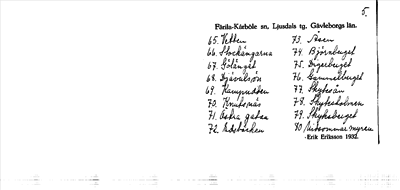 5.
Färila-Kårböle sn, Ljusdals tg. Gävleborgs län.
65. Vetten
66. Stockängarna
67. Götänget
68. Djävulsön
69. Kamprudden
70. Knutsnäs
71. Östra gatan
72. Edsbäcken
73. Åsen
74. Björnberget
75. Digerberget
76. Gammelberget
77. Skytteån
78. Skytteholmen
79. Skytteberget
80 Midsommarmyren
Erik Eriksson 1932.